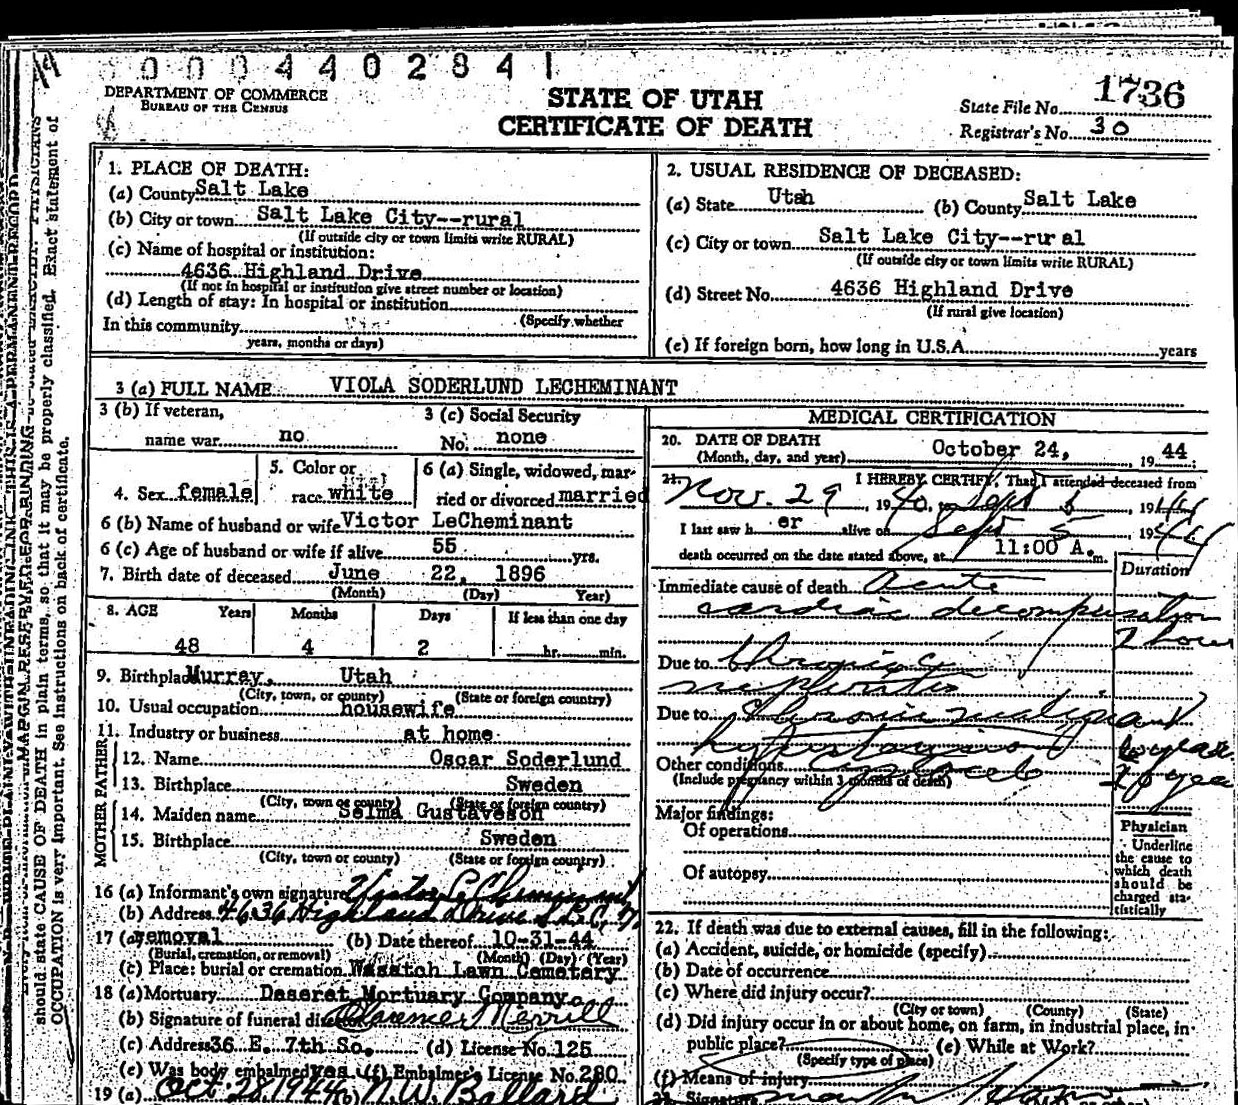 0 0 0 4 4 0 2 8 4 1
DEPARTMENT OF COMMERCE
BUREAU OF THE CENSUS
STATE OF UTAH
CERTIFICATE OF DEATH
State File No. 1736
Registrar's No. 30
1. PLACE OF DEATH:
(a) County Salt Lake
(b) City or town Salt Lake City--rural
(If outside city or town limits write RURAL)
(c) Name of hospital or institution:
4636 Highland Drive
(If not in hospital or institution give street number or location)
(d) Length of stay: In hospital or institution
(Specify whether
In this community
years, months or days)
2. USUAL RESIDENCE OF DECEASED:
(a) State Utah (b) County Salt Lake
(c) City or town Salt Lake City--rural
(If outside city or town limits write RURAL)
(d) Street No. 4636 Highland Drive
(If rural give location)
(e) If foreign born, how long in U.S.A. years
3 (a) FULL NAME VIOLA SODERLUND LECHEMINANT
3 (b) If veteran,
name war no
3 (c) Social Security
No. none
4. Sex female
5. Color or
race white
6 (a) Single, widowed, mar-
ried or divorced married
6 (b) Name of husband or wife Victor LeCheminant
6 (c) Age of husband or wife if alive 55 yrs.
7. Birth date of deceased June 22, 1896
(Month) (Day) Year)
8. AGE Years Months Days If less than one day
48 4 2 hr. min.
9. Birthplace Murray, Utah
(City, town, or county) (State or foreign country)
10. Usual occupation housewife
11. Industry or business at home
FATHER
12. Name Oscar Soderlund
13. Birthplace Sweden
(City, town or county) (State or foreign country)
MOTHER
14. Maiden name Selma Gustaveson
15. Birthplace Sweden
(City, town or county) (State or foreign country)
16 (a) Informant's own signature Victor LeCheminant
(b) Address 4636 Highland Drive S.L.C. 7,
17 (a) removal (b) Date thereof 10-31-44
(Burial, cremation, or removal) (Month) (Day) (Year)
(c) Place: burial or cremation Wasatch Lawn Cemetery
18 (a) Mortuary Deseret Mortuary Company
(b) Signature of funeral director Clarence Merrill
(c) Address 36 E. 7th So. (d) License No. 125
(e) Was body embalmed yes (f) Embalmer's License No. 280
19 (a) Oct. 28, 1944 (b) N.W. Ballard
MEDICAL CERTIFICATION
20. DATE OF DEATH
(Month, day, and year) October 24, 19 44
21. I HEREBY CERTIFY, That I attended deceased from
Nov. 29, 1940, to Sept 5, 1944
I last saw h er alive on Sept 5 1944
death occurred on the date stated above, at 11:00 A. m.
Duration
Immediate cause of death Acute
cardiac decompensation
2 hours
Due to chronic
nephritis
Due to chronic malignant
hypertension
Other conditions
(Include pregnancy within 3 months of death)
Major findings:
Of operations
Of autopsy
Physician
Underline
the cause to
which death
should be
charged sta-
tistically
22. If death was due to external causes, fill in the following:
(a) Accident, suicide, or homicide (specify)
(b) Date of occurrence
(c) Where did injury occur?
(City or town) (County) (State)
(d) Did injury occur in or about home, on farm, in industrial place, in
public place? (e) While at Work?
(Specify type of place)
(f) Means of injury
23. Signature
should state CAUSE OF DEATH in plain terms, so that it may be properly classified. Exact statement of
OCCUPATION is very important. See instructions on back of certificate.